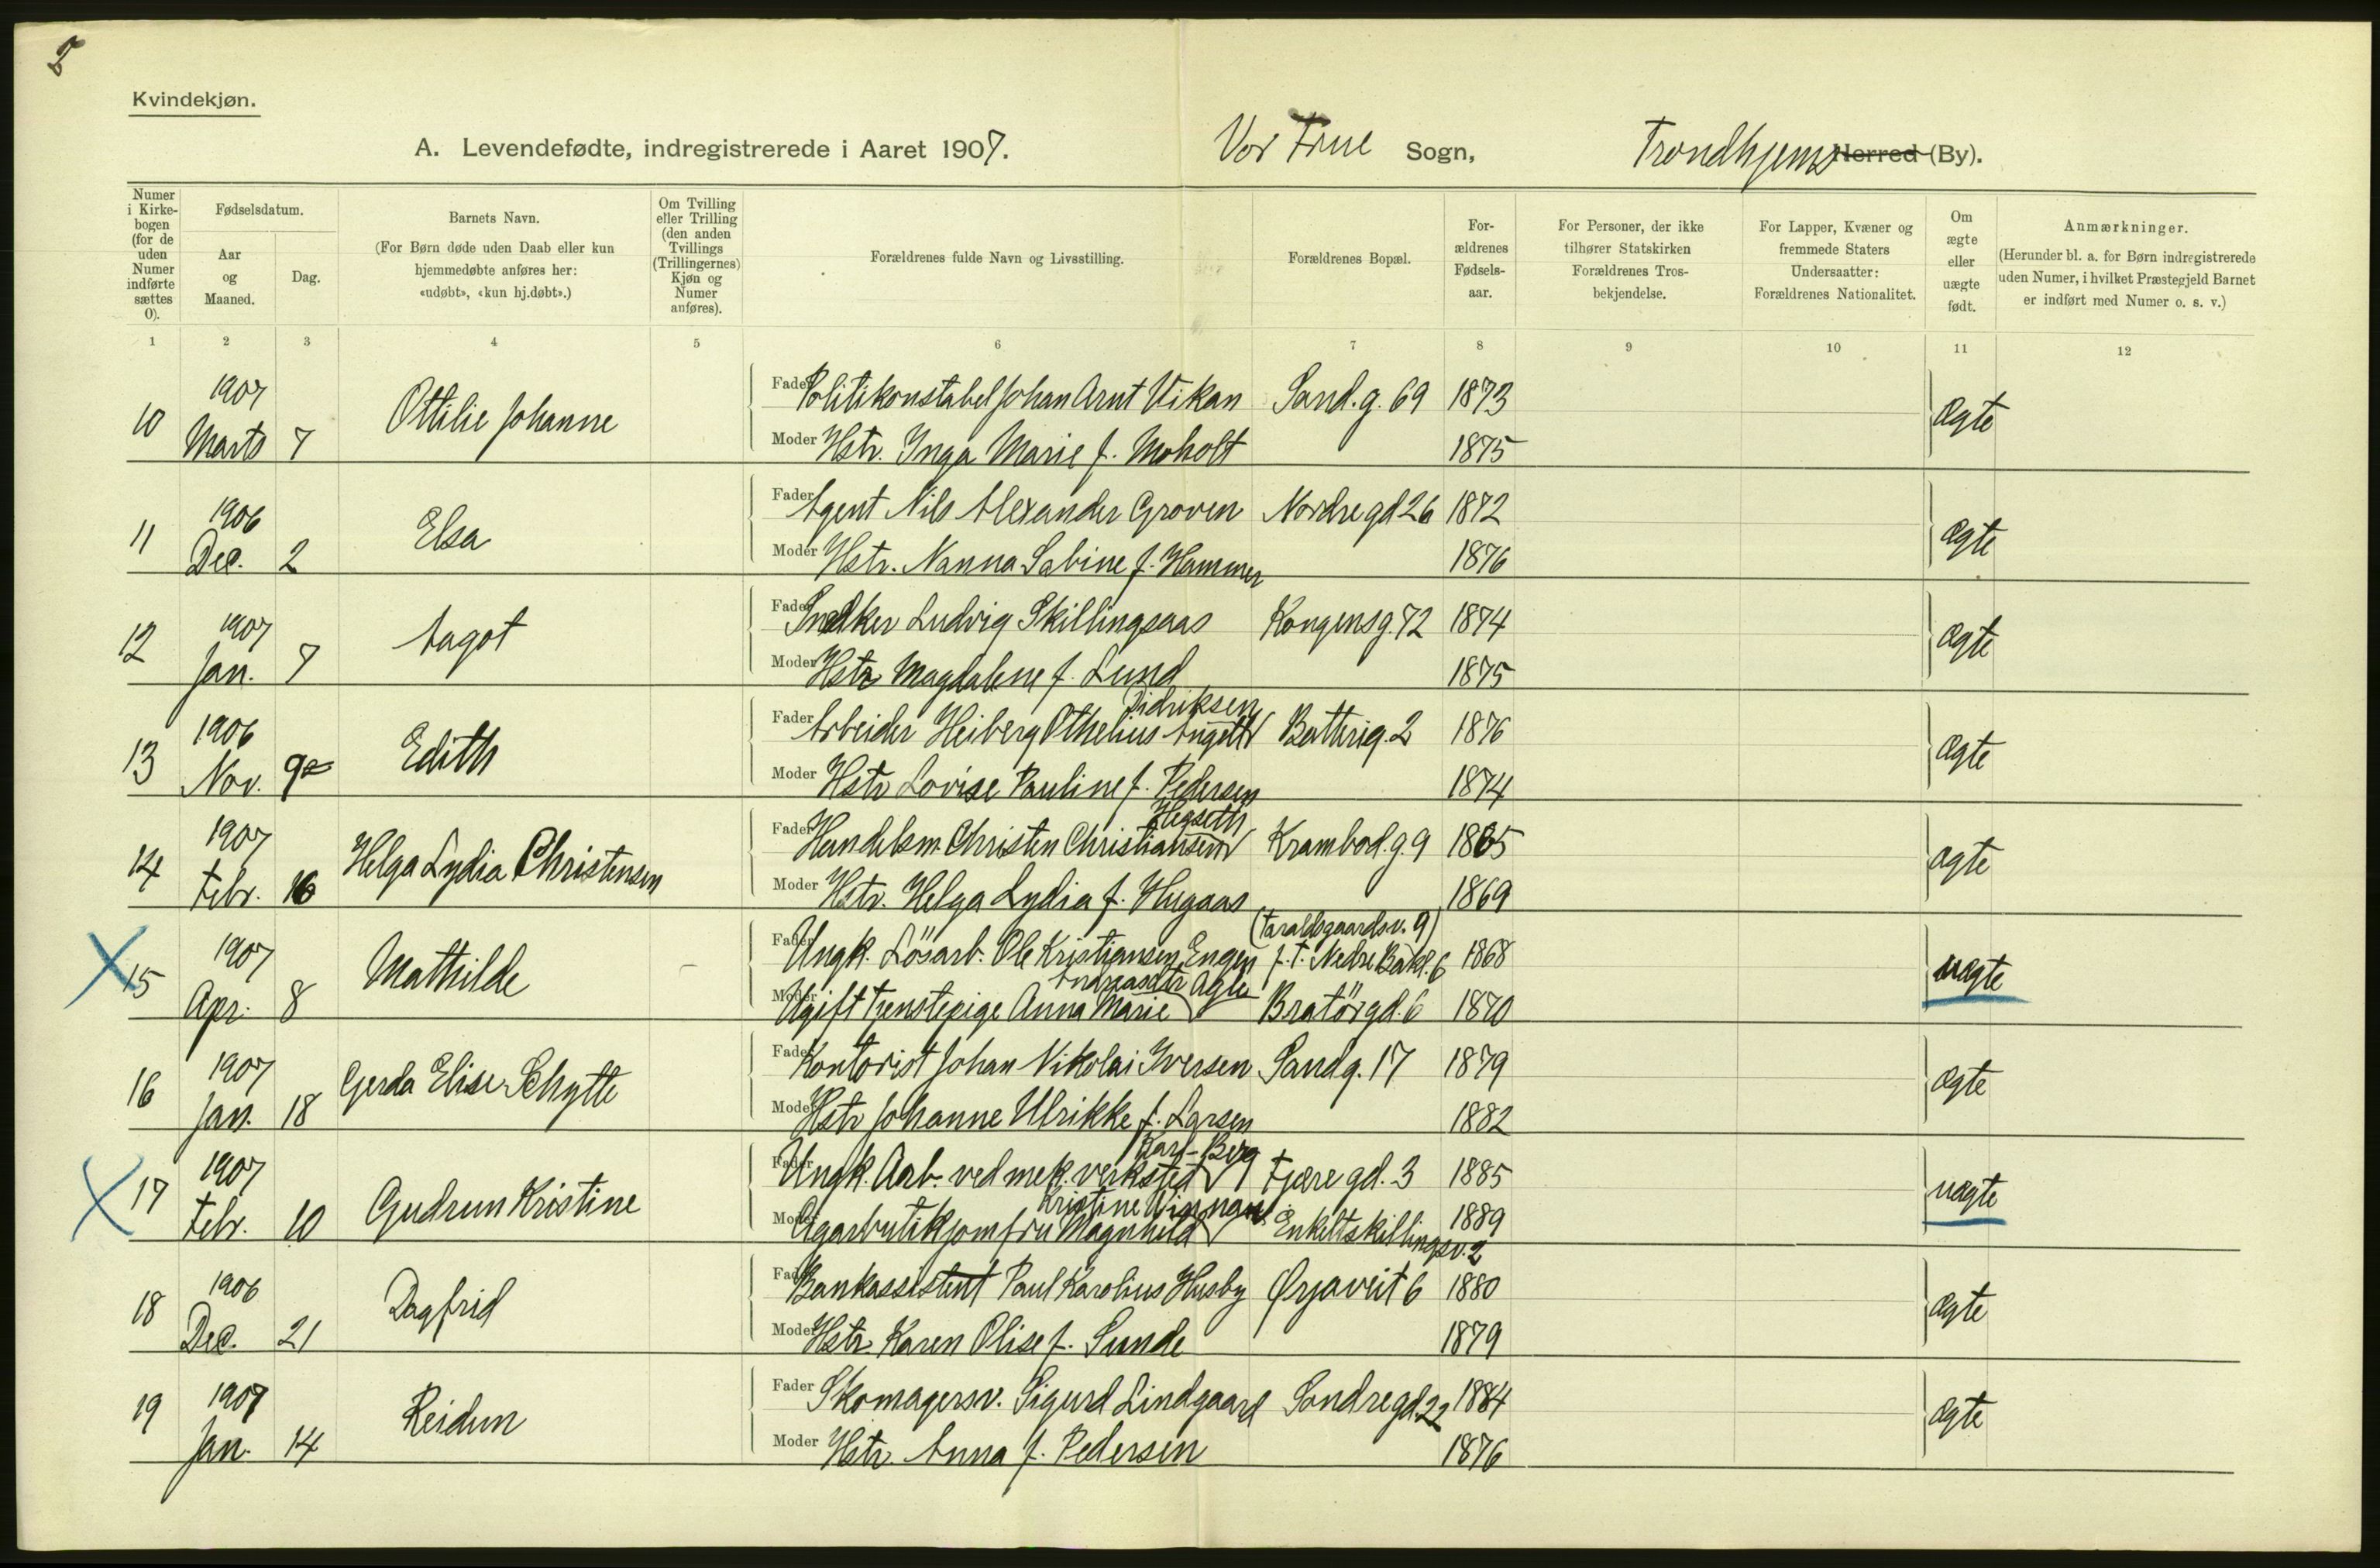 5
Kvindekjøn.
A. Levendefødte, indregistrerede i Aaret 1907. Vor Frue Sogn, Trondhjems Herred (By).
Numer i Kirke-bogen (for de uden Numer indførte sættes 0).
Fødselsdatum.
Aar og Maaned.
Dag.
Barnets Navn.
(For Børn døde uden Daab eller kun hjemmedøbte anføres her: «udøbt», «kun hj.døbt».)
Om Tvilling eller Trilling (den anden Tvillings (Trillingernes) Kjøn og Numer anføres).
Forældrenes fulde Navn og Livsstilling.
Forældrenes Bopæl.
For-ældrenes Fødsels-aar.
For Personer, der ikke tilhører Statskirken Forældrenes Tros-bekjendelse.
For Lapper, Kvæner og fremmede Staters Undersaatter: Forældrenes Nationalitet.
Om ægte eller uægte født.
Anmærkninger.
(Herunder bl. a. for Børn indregistrerede uden Numer, i hvilket Præstegjeld Barnet er indført med Numer o. s. v.)
1 2 3 4 5 6 7 8 9 10 11 12
10 1907 Marts 7 Ottilie Johanne
Fader Politikonstabel Johan Arnt Vikan Sand.g. 69 1873 Ægte
Moder Hstr. Inga Marie f. Moholt 1875
11 1906 Dec. 2 Elsa
Fader Agent Nils Alexander Groven Nordregd 26 1872 Ægte
Moder Hstr. Nanna Sabine f. Hammer 1876
12 1907 Jan. 7 Aagot
Fader Snedker Ludvig Skillingsaas Kongensg. 72 1874 Ægte
Moder Hstr Magdalene f. Lund 1875
13 1906 Nov. 9 Edith
Didriksen
Fader Arbeider Heiberg Othelius Batterig. 2 1876 Ægte
Moder Hstr Lovise Pauline f. Pedersen 1874
14 1907 Febr. 16 Helga Lydia Christensen
Hegseth
Fader Handelsm. Christen Christiansen Krambod.g. 9 1865 Ægte
Moder Hstr. Helga Lydia f. Hugaas 1869
15 1907 Apr. 8 Mathilde
(Taraldsgaardsv. 9)
Fader Ungk. Lösarb. Ole Kristiansen Engen f.t. Nedre Bakl. 6 1868 uægte
Moder Ugift Tjenstepige Anna Marie Bratörgd. 6 1870
16 1907 Jan. 18 Gerda Elise Schytte
Fader Kontorist Johan Nikolai Iversen Sandg. 17 1879 Ægte
Moder Hstr Johanne Ulrikke f. Larsen 1882
17 1907 Febr. 10 Gudrun Kristine
Karl Berg
Fader Ungk. Arb. ved mek. verksted Fjære gd. 3 1885 uægte
Kristine
Moder Cigarbutikjomfru Magnhild Enkeltskillingsv. 2 1889
18 1906 Dec. 21 Dagfrid
Fader Bankassistent Paul Karolius Husby Ørjaveit 6 1880 Ægte
Moder Hstr. Karen Olise f. Sunde 1879
19 1907 Jan. 14 Reidun
Fader Skomagersv. Sigurd Lindgaard Sondregd. 22 1884 Ægte
Moder Hstr. Anna f. Pedersen 1876